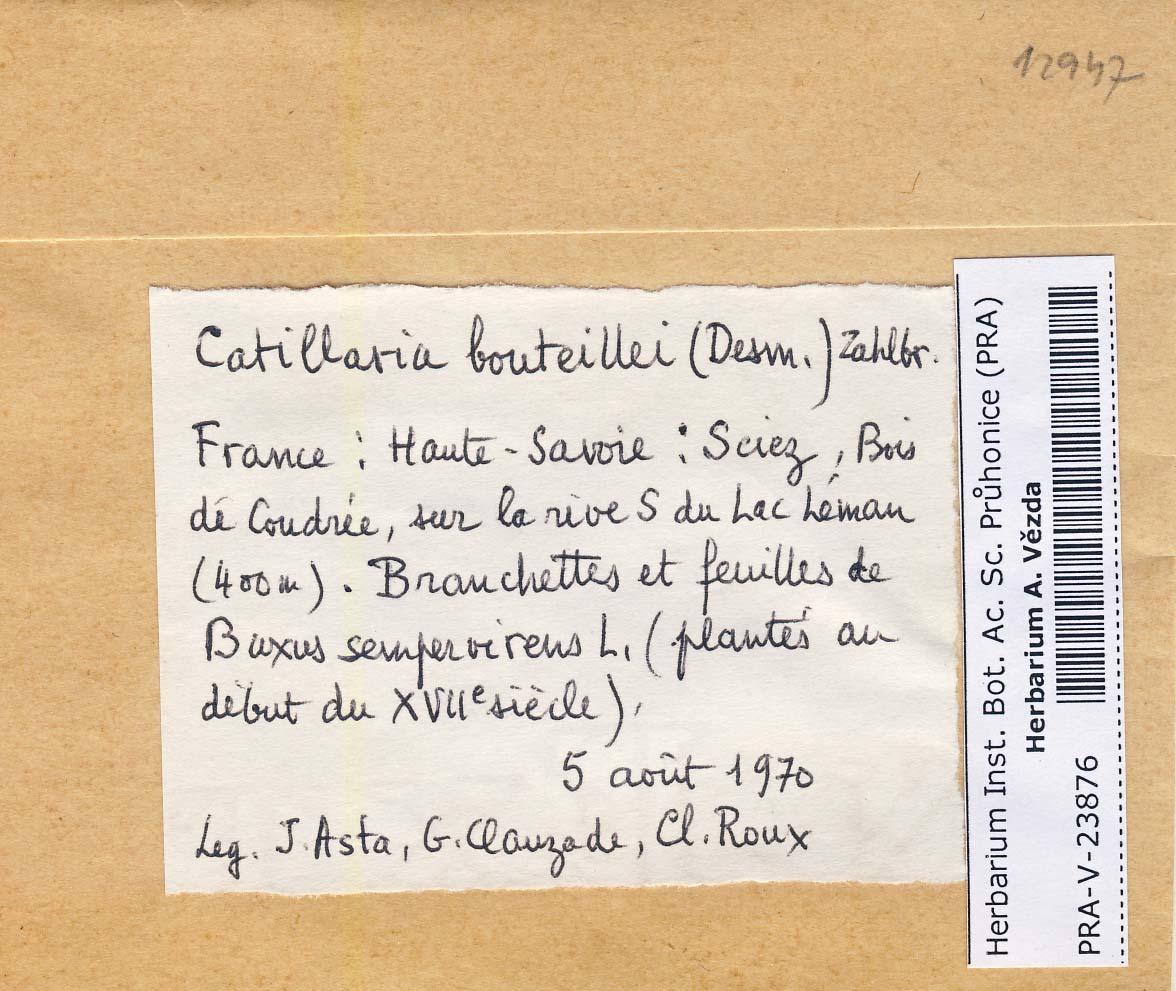 12947
Catillaria bouteillei (Desm.) Zahlbr.
France : Haute-Savoie : Sciez, Bois
de Coudrée, sur la rive S du Lac Léman
(400m). Branchettes et feuilles de
Buxus sempervirens L. (plantés au
début du XVIIe siècle).
5 août 1970
Leg. J. Asta, G. Clauzade, Cl. Roux
Herbarium Inst. Bot. Ac. Sc. Průhonice (PRA)
Herbarium A. Vězda
PRA-V-23876